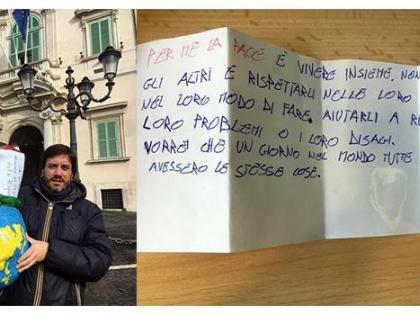 PER ME LA PACE È VIVERE INSIEME, NON
GLI ALTRI E RISPETTARLI NELLE LORO
NEL LORO MODO DI FARE. AIUTARLI A
LORO PROBLEMI O I LORO DISAGI.
VORREI CHE UN GIORNO NEL MONDO TUTTI
AVESSERO LE STESSE COSE.